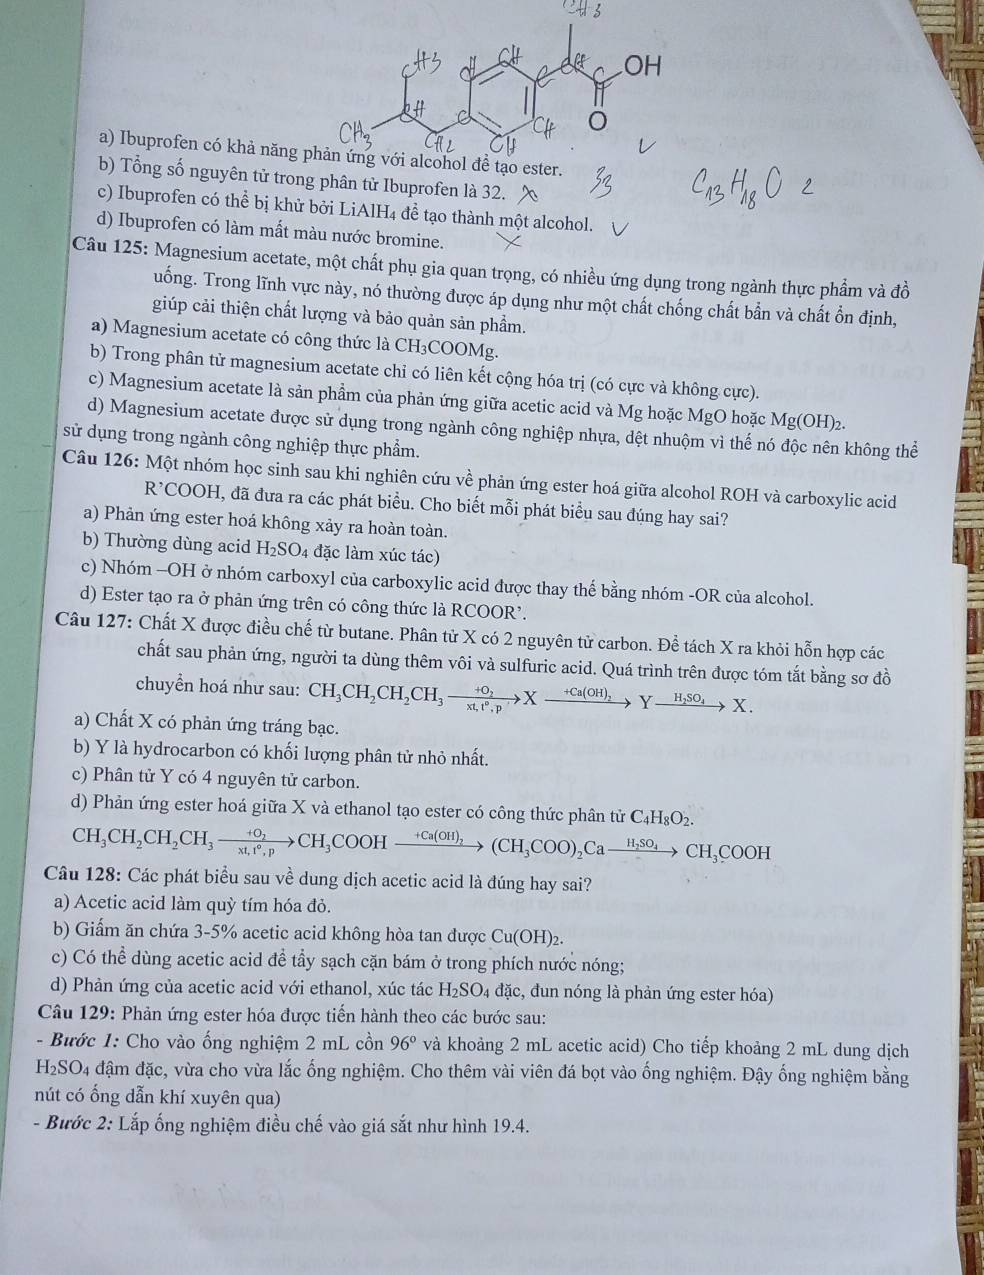 CH3
CH3 CH CH CH C OH
CH C O
CH3 CH2 CH CH
a) Ibuprofen có khả năng phản ứng với alcohol để tạo ester. V
b) Tổng số nguyên tử trong phân tử Ibuprofen là 32. X 33 C13H18O2
c) Ibuprofen có thể bị khử bởi LiAlH₄ để tạo thành một alcohol. V
d) Ibuprofen có làm mất màu nước bromine. X
Câu 125: Magnesium acetate, một chất phụ gia quan trọng, có nhiều ứng dụng trong ngành thực phẩm và đồ
uống. Trong lĩnh vực này, nó thường được áp dụng như một chất chống chất bẩn và chất ổn định,
giúp cải thiện chất lượng và bảo quản sản phẩm.
a) Magnesium acetate có công thức là CH₃COOMg.
b) Trong phân tử magnesium acetate chỉ có liên kết cộng hóa trị (có cực và không cực).
c) Magnesium acetate là sản phẩm của phản ứng giữa acetic acid và Mg hoặc MgO hoặc Mg(OH)₂.
d) Magnesium acetate được sử dụng trong ngành công nghiệp nhựa, dệt nhuộm vì thế nó độc nên không thể
sử dụng trong ngành công nghiệp thực phẩm.
Câu 126: Một nhóm học sinh sau khi nghiên cứu về phản ứng ester hoá giữa alcohol ROH và carboxylic acid
R’COOH, đã đưa ra các phát biểu. Cho biết mỗi phát biểu sau đúng hay sai?
a) Phản ứng ester hoá không xảy ra hoàn toàn.
b) Thường dùng acid H₂SO₄ đặc làm xúc tác)
c) Nhóm –OH ở nhóm carboxyl của carboxylic acid được thay thế bằng nhóm -OR của alcohol.
d) Ester tạo ra ở phản ứng trên có công thức là RCOOR’.
Câu 127: Chất X được điều chế từ butane. Phân tử X có 2 nguyên tử carbon. Để tách X ra khỏi hỗn hợp các
chất sau phản ứng, người ta dùng thêm vôi và sulfuric acid. Quá trình trên được tóm tắt bằng sơ đồ
chuyển hoá như sau: CH₃CH₂CH₂CH₃ —(+O₂ / xt, tº, p)→ X —(+Ca(OH)₂)→ Y —(H₂SO₄)→ X.
a) Chất X có phản ứng tráng bạc.
b) Y là hydrocarbon có khối lượng phân tử nhỏ nhất.
c) Phân tử Y có 4 nguyên tử carbon.
d) Phản ứng ester hoá giữa X và ethanol tạo ester có công thức phân tử C₄H₈O₂.
CH₃CH₂CH₂CH₃ —(+O₂ / xt, tº, p)→ CH₃COOH —(+Ca(OH)₂)→ (CH₃COO)₂Ca —(H₂SO₄)→ CH₃COOH
Câu 128: Các phát biểu sau về dung dịch acetic acid là đúng hay sai?
a) Acetic acid làm quỳ tím hóa đỏ.
b) Giấm ăn chứa 3-5% acetic acid không hòa tan được Cu(OH)₂.
c) Có thể dùng acetic acid để tẩy sạch cặn bám ở trong phích nước nóng;
d) Phản ứng của acetic acid với ethanol, xúc tác H₂SO₄ đặc, đun nóng là phản ứng ester hóa)
Câu 129: Phản ứng ester hóa được tiến hành theo các bước sau:
- Bước 1: Cho vào ống nghiệm 2 mL cồn 96º và khoảng 2 mL acetic acid) Cho tiếp khoảng 2 mL dung dịch
H₂SO₄ đậm đặc, vừa cho vừa lắc ống nghiệm. Cho thêm vài viên đá bọt vào ống nghiệm. Đậy ống nghiệm bằng
nút có ống dẫn khí xuyên qua)
- Bước 2: Lắp ống nghiệm điều chế vào giá sắt như hình 19.4.